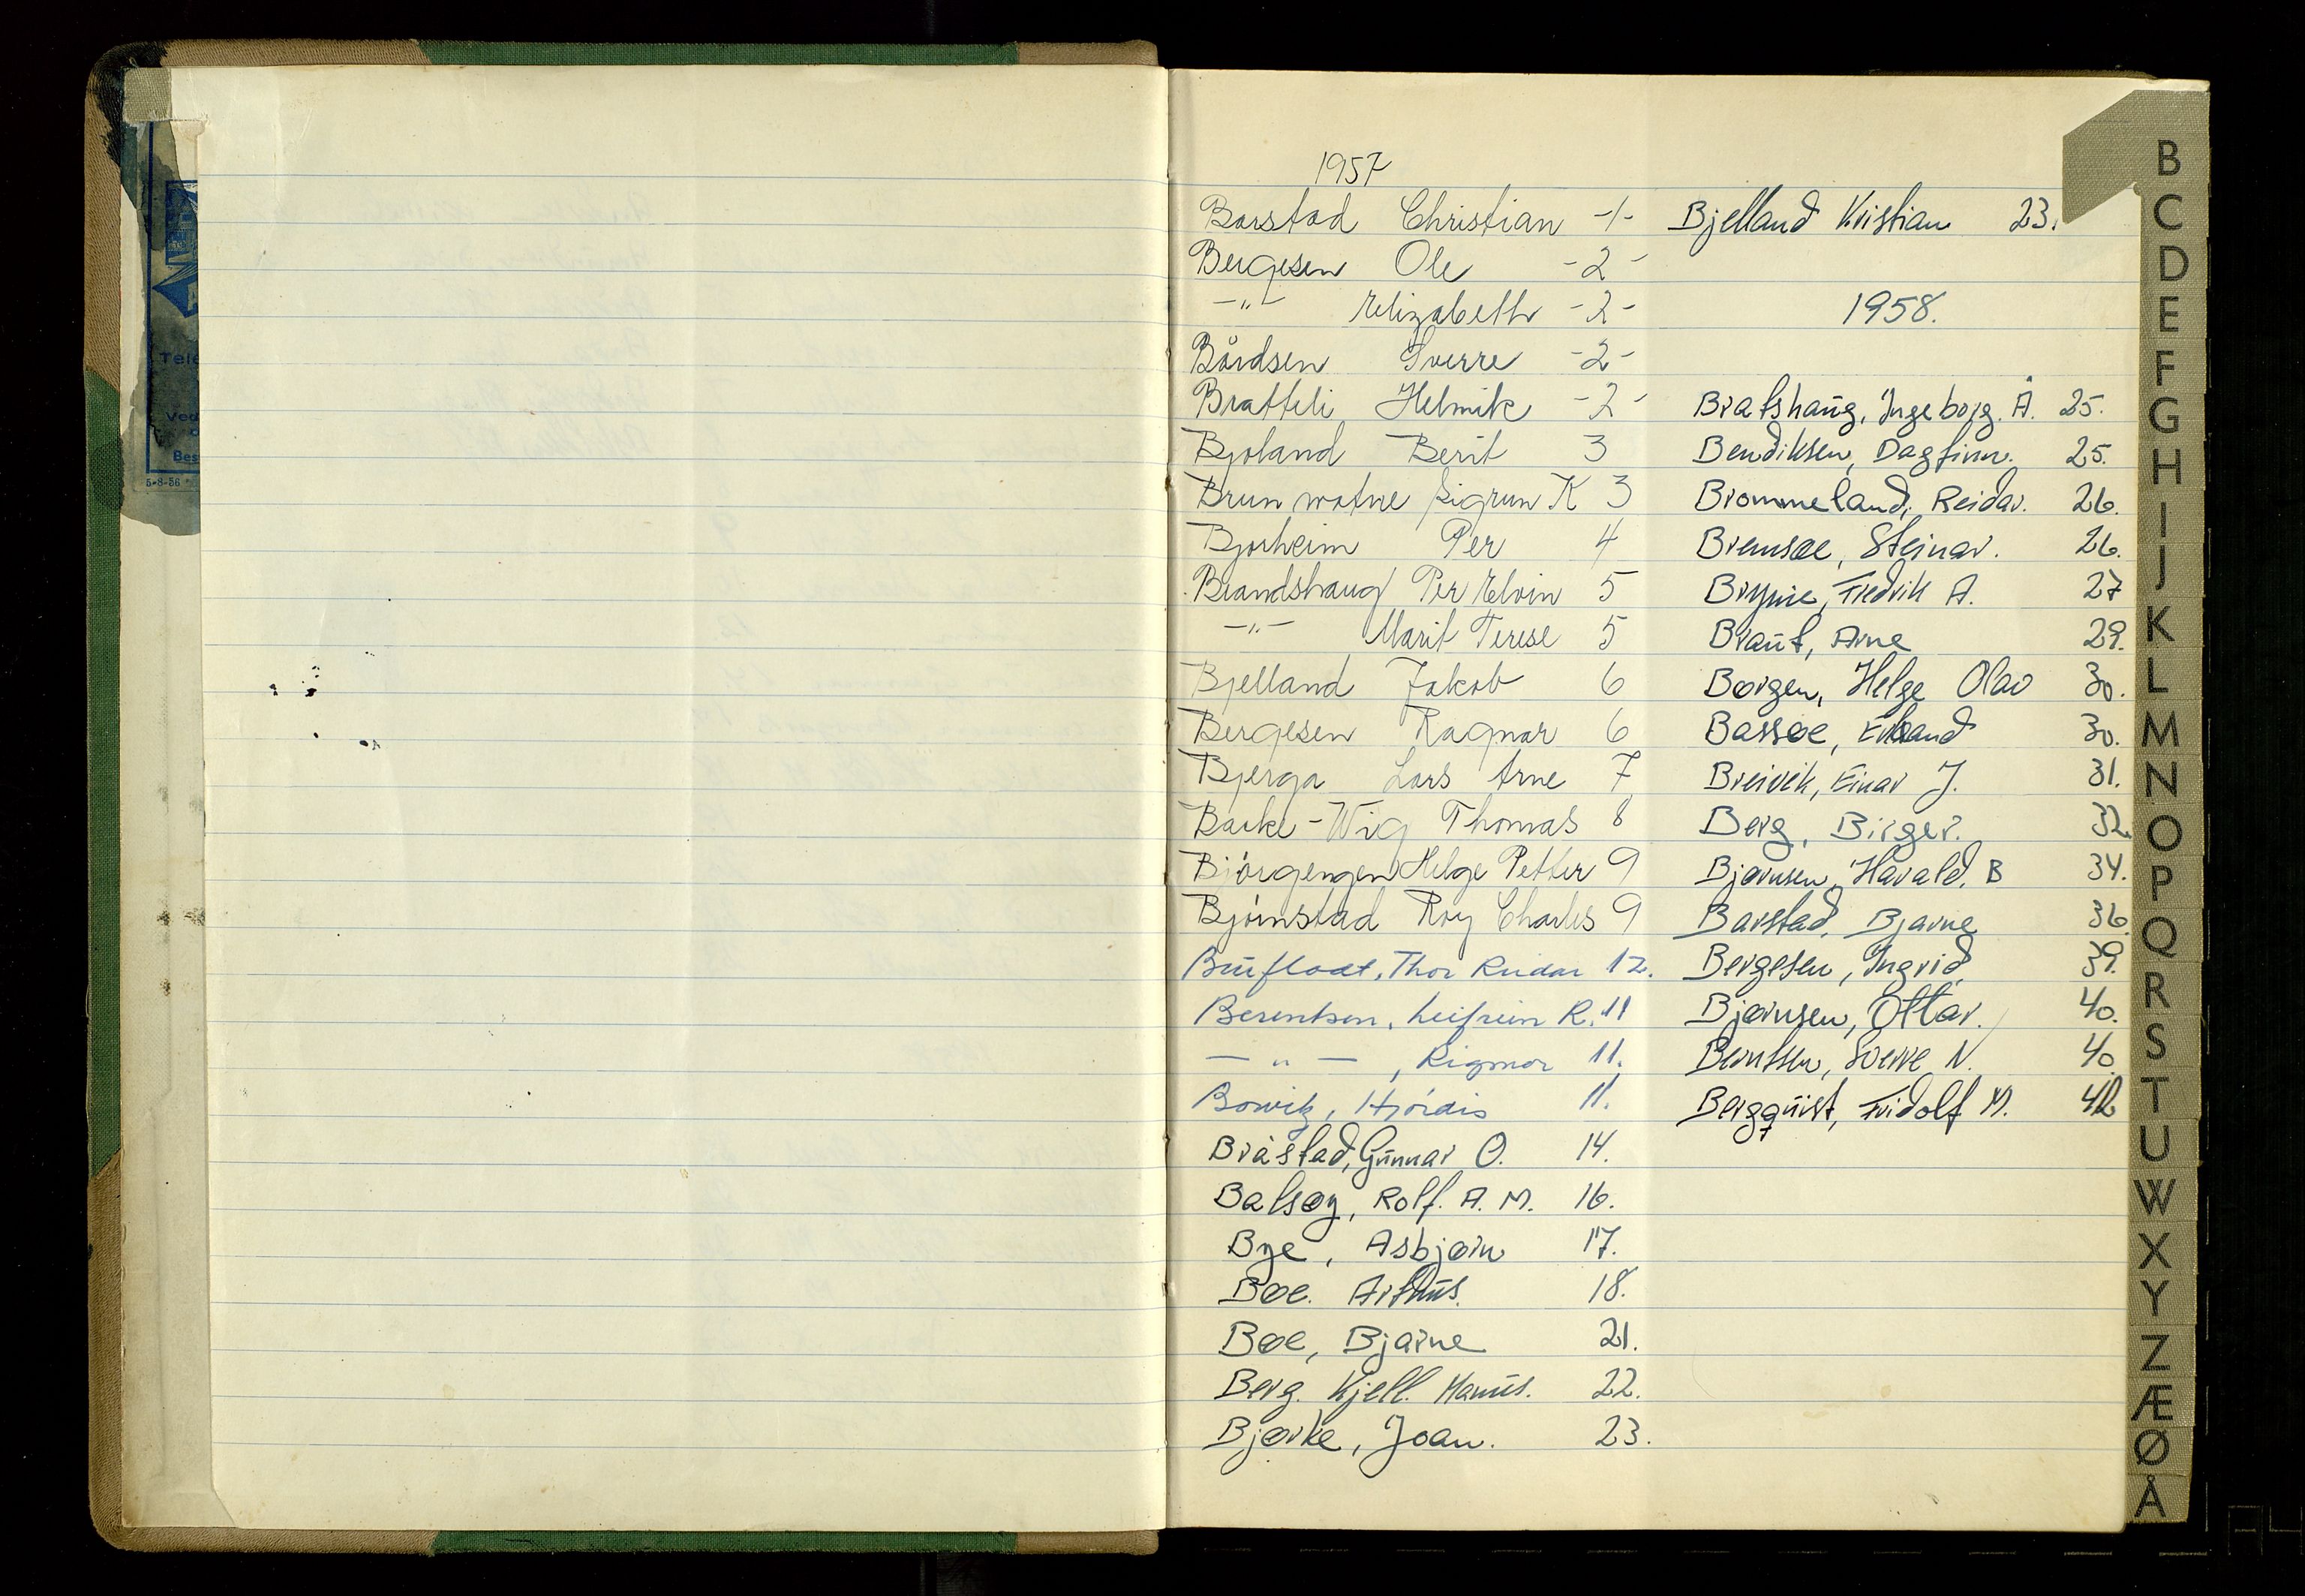 1957
Barstad Christian -1-
Bergesen Ole -2-
-"- Elizabeth -2-
Bårdsen Sverre -2-
Bratteli Helmik -2-
Bjoland Berit 3
Brunvatne Sigrun K 3
Bjorheim Per 4
Brandshaug Per Elvin 5
-"- Marit Terese 5
Bjelland Jakob 6
Bergesen Ragnar 6
Bjerga Lars Arne 7
Backe-Wig Thomas 8
Bjørgengen Helge Petter 9
Bjørnstad Roy Charles 9
Thor Reidar 12.
Berentsen, Leifrein R. 11
-"-, Rigmor 11.
Bowitz, Hjørdis 11.
Bråstad, Gunnar O. 14.
Balsøy, Rolf. A. M. 16.
Bye, Asbjørn 17.
Bøe. 18.
Bøe, Bjarne 21.
Berg. Kjell. Hamus. 22.
Bjørke, Joan. 23.
Bjelland Kristian 23.
1958.
Bratshaug, Ingeborg. Å. 25.
Bendiksen, Dagfinn. 25.
Brommeland, Reidar. 26.
Bremsøe, Steinar. 26.
Bryne, Fredrik A. 27
Braut, Arne 29.
Børgen, Helge Olav 30.
Bassøe, Erland 30.
Breivik, Einar J. 31.
Berg, Birger. 32.
Bjørnsen, Harald. B 34.
Barstad, Bjarne 36.
Bergesen, Ingrid 39.
Bjørnsen, Ottar. 40.
Berntsen, Sverre N. 40.
Bergquist, Fridolf M. 42
B
C
D
E
F
G
H
I
J
K
L
M
N
O
P
Q
R
S
T
U
W
X
Y
Z
Æ
Ø
Å
Tele
Ved
Bes
5-8-56